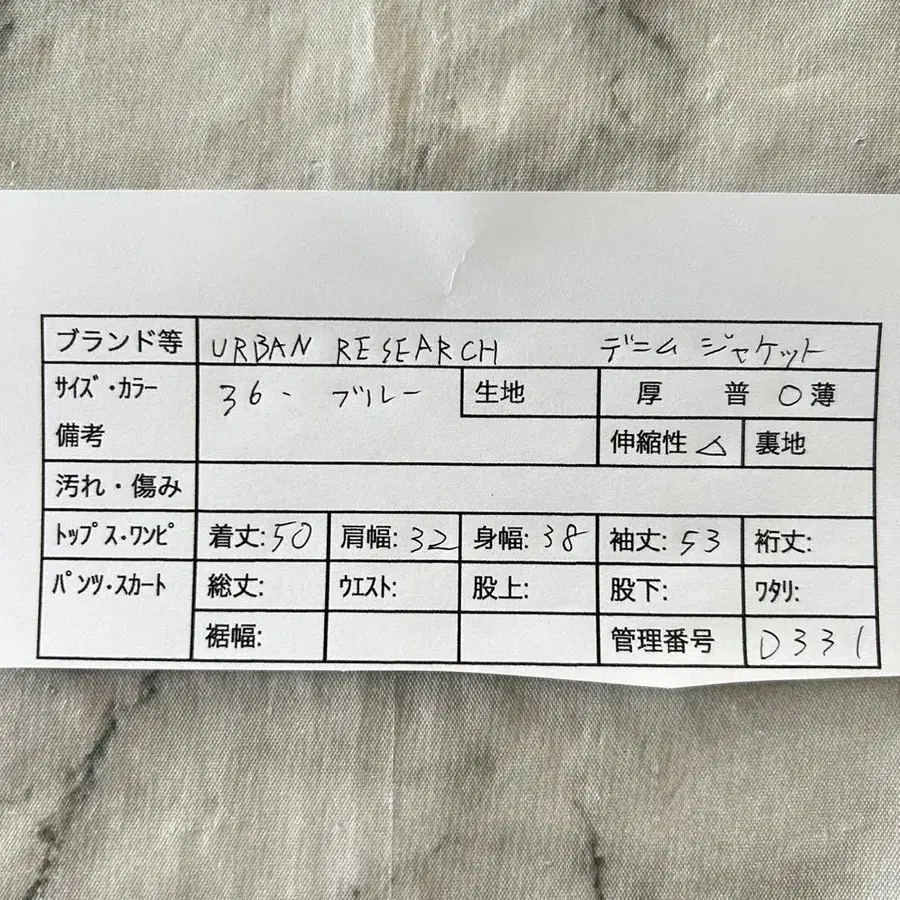 ブランド等 URBAN RESEARCH デニム ジャケット
サイズ・カラー 36・ブルー 生地 厚 普 〇薄
備考 伸縮性 △ 裏地
汚れ・傷み
トップス・ワンピ 着丈:50 肩幅:32 身幅:38 袖丈:53 裄丈:
パンツ・スカート 総丈: ウエスト: 股上: 股下: ワタリ:
裾幅: 管理番号 D331